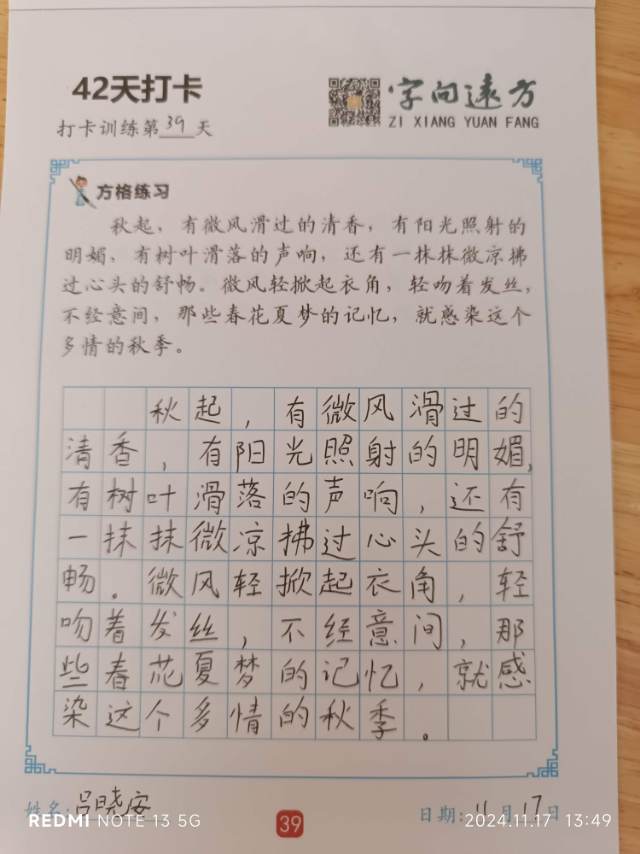 42天打卡
打卡训练第39天
字向远方
ZI XIANG YUAN FANG
方格练习
秋起，有微风滑过的清香，有阳光照射的
明媚，有树叶滑落的声响，还有一抹抹微凉拂
过心头的舒畅。微风轻掀起衣角，轻吻着发丝，
不经意间，那些春花夏梦的记忆，就感染这个
多情的秋季。
秋起，有微风滑过的
清香，有阳光照射的明媚，
有树叶滑落的声响，还有
一抹抹微凉拂过心头的舒
畅。微风轻掀起衣角，轻
吻着发丝，不经意间，那
些春花夏梦的记忆，就感
染这个多情的秋季。
姓名：吕晓安
日期：11月17日
39
REDMI NOTE 13 5G
2024.11.17 13:49